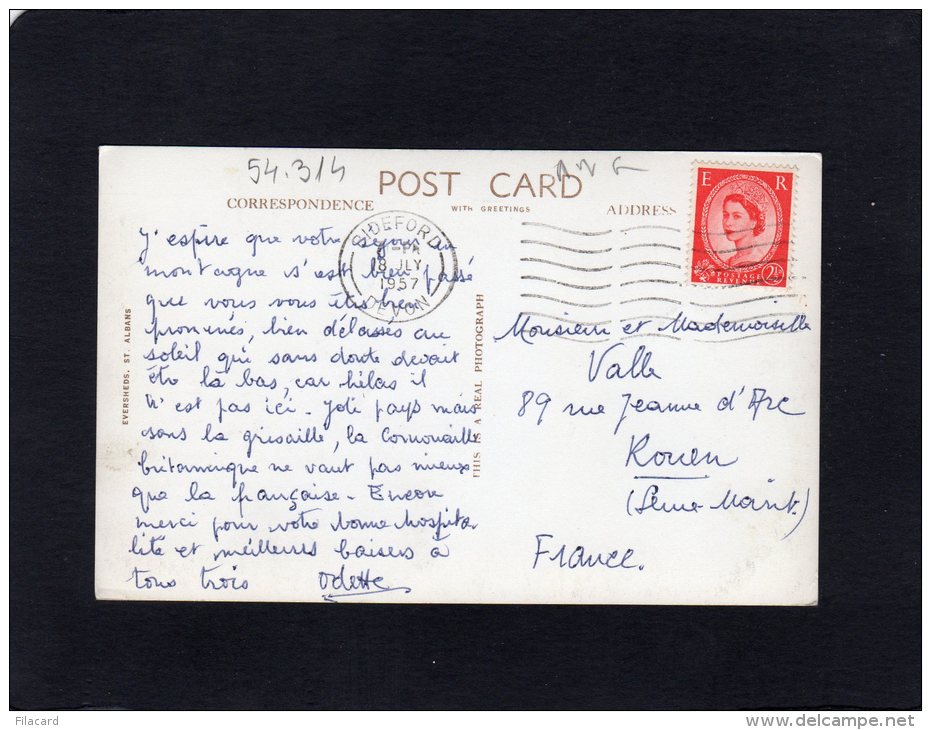 54.314
POST CARD
CORRESPONDENCE
WITH GREETINGS
ADDRESS
E R
POSTAGE
REVENUE
2½
BIDEFORD
8 JLY
1957
DEVON
J'espère que votre séjour en
montagne s'est bien passé
que vous vous êtes bien
promenés, bien délassés au
soleil qui sans doute devait
être là bas, car hélas il
n'est pas ici. Joli pays mais
sous la grisaille, la Cornouaille
britannique ne vaut pas mieux
que la française. Encore
merci pour votre bonne hospita
lité et meilleurs baisers à
tous trois Odette
EVERSHEDS, ST. ALBANS
THIS IS A REAL PHOTOGRAPH
Monsieur et Mademoiselle
Valle
89 rue Jeanne d'Arc
Rouen
(Seine Marit.)
France.
Filacard
www.delcampe.net